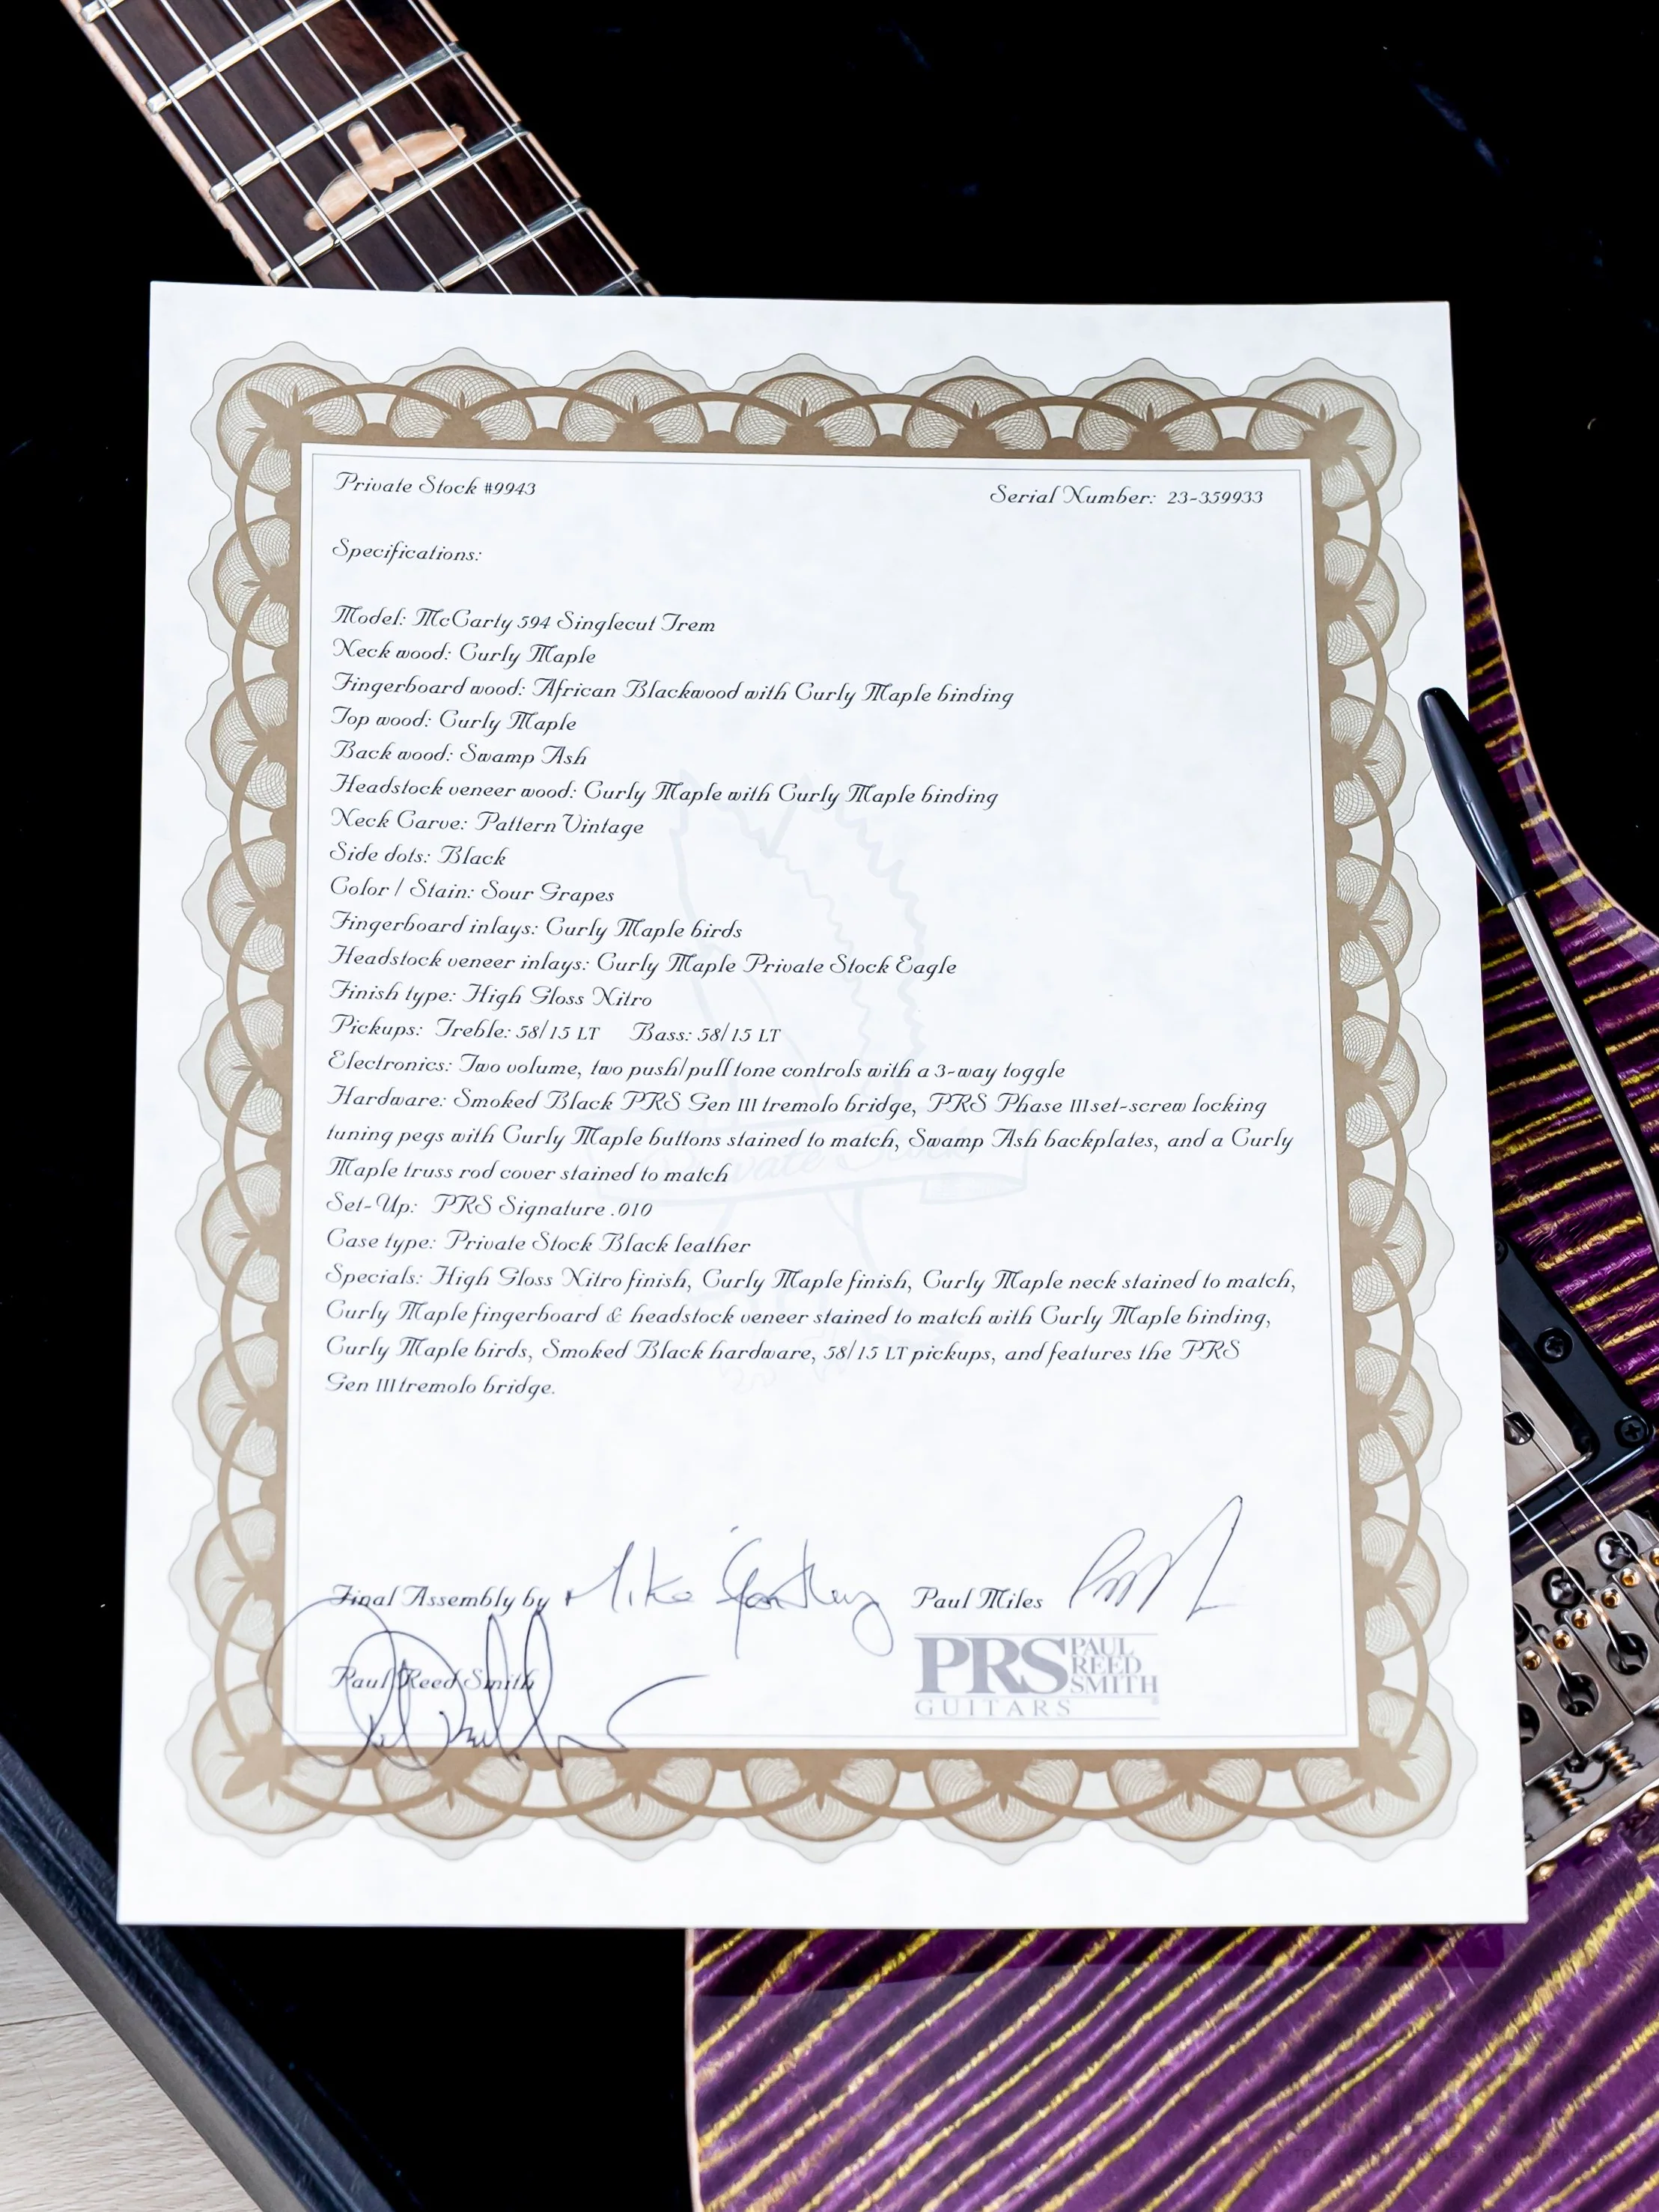 Private Stock #9943
Serial Number: 23-359933
Specifications:
Model: McCarty 594 Singlecut Trem
Neck wood: Curly Maple
Fingerboard wood: African Blackwood with Curly Maple binding
Top wood: Curly Maple
Back wood: Swamp Ash
Headstock veneer wood: Curly Maple with Curly Maple binding
Neck Carve: Pattern Vintage
Side dots: Black
Color / Stain: Sour Grapes
Fingerboard inlays: Curly Maple birds
Headstock veneer inlays: Curly Maple Private Stock Eagle
Finish type: High Gloss Nitro
Pickups: Treble: 58/15 LT Bass: 58/15 LT
Electronics: Two volume, two push/pull tone controls with a 3-way toggle
Hardware: Smoked Black PRS Gen III tremolo bridge, PRS Phase III set-screw locking
tuning pegs with Curly Maple buttons stained to match, Swamp Ash backplates, and a Curly
Maple truss rod cover stained to match
Private Stock
Set-Up: PRS Signature .010
Case type: Private Stock Black leather
Specials: High Gloss Nitro finish, Curly Maple finish, Curly Maple neck stained to match,
Curly Maple fingerboard & headstock veneer stained to match with Curly Maple binding,
Curly Maple birds, Smoked Black hardware, 58/15 LT pickups, and features the PRS
Gen III tremolo bridge.
Final Assembly by Mike
Paul Miles
Paul Reed Smith
PRS PAUL
REED
SMITH
GUITARS